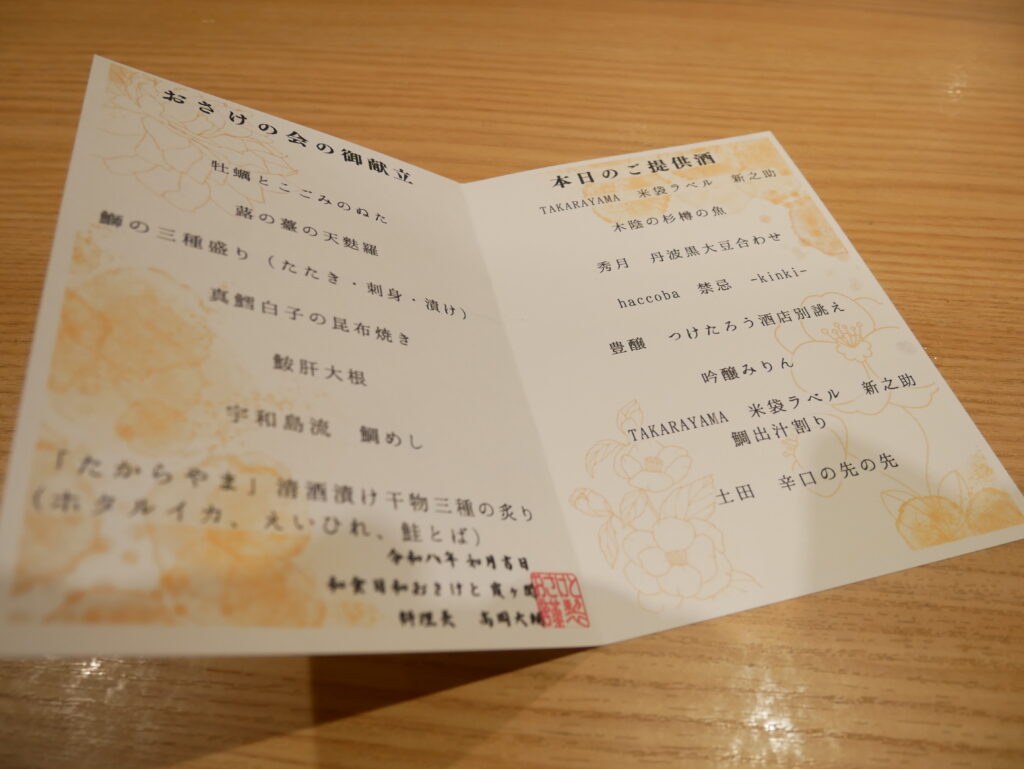 おさけの会の御献立
牡蠣とこごみのぬた
蕗の薹の天麩羅
鰤の三種盛り（たたき・刺身・漬け）
真鱈白子の昆布焼き
鮟肝大根
宇和島流　鯛めし
「たからやま」清酒漬け干物三種の炙り
（ホタルイカ、えいひれ、鮭とば）
令和八年 如月吉日
和食日和おさけと 霞ヶ関
料理長　高岡大
本日のご提供酒
TAKARAYAMA　米袋ラベル　新之助
木陰の杉樽の魚
秀月　丹波黒大豆合わせ
haccoba　禁忌　-kinki-
豊醸　つけたろう酒店別誂え
吟醸みりん
TAKARAYAMA　米袋ラベル　新之助
鯛出汁割り
土田　辛口の先の先